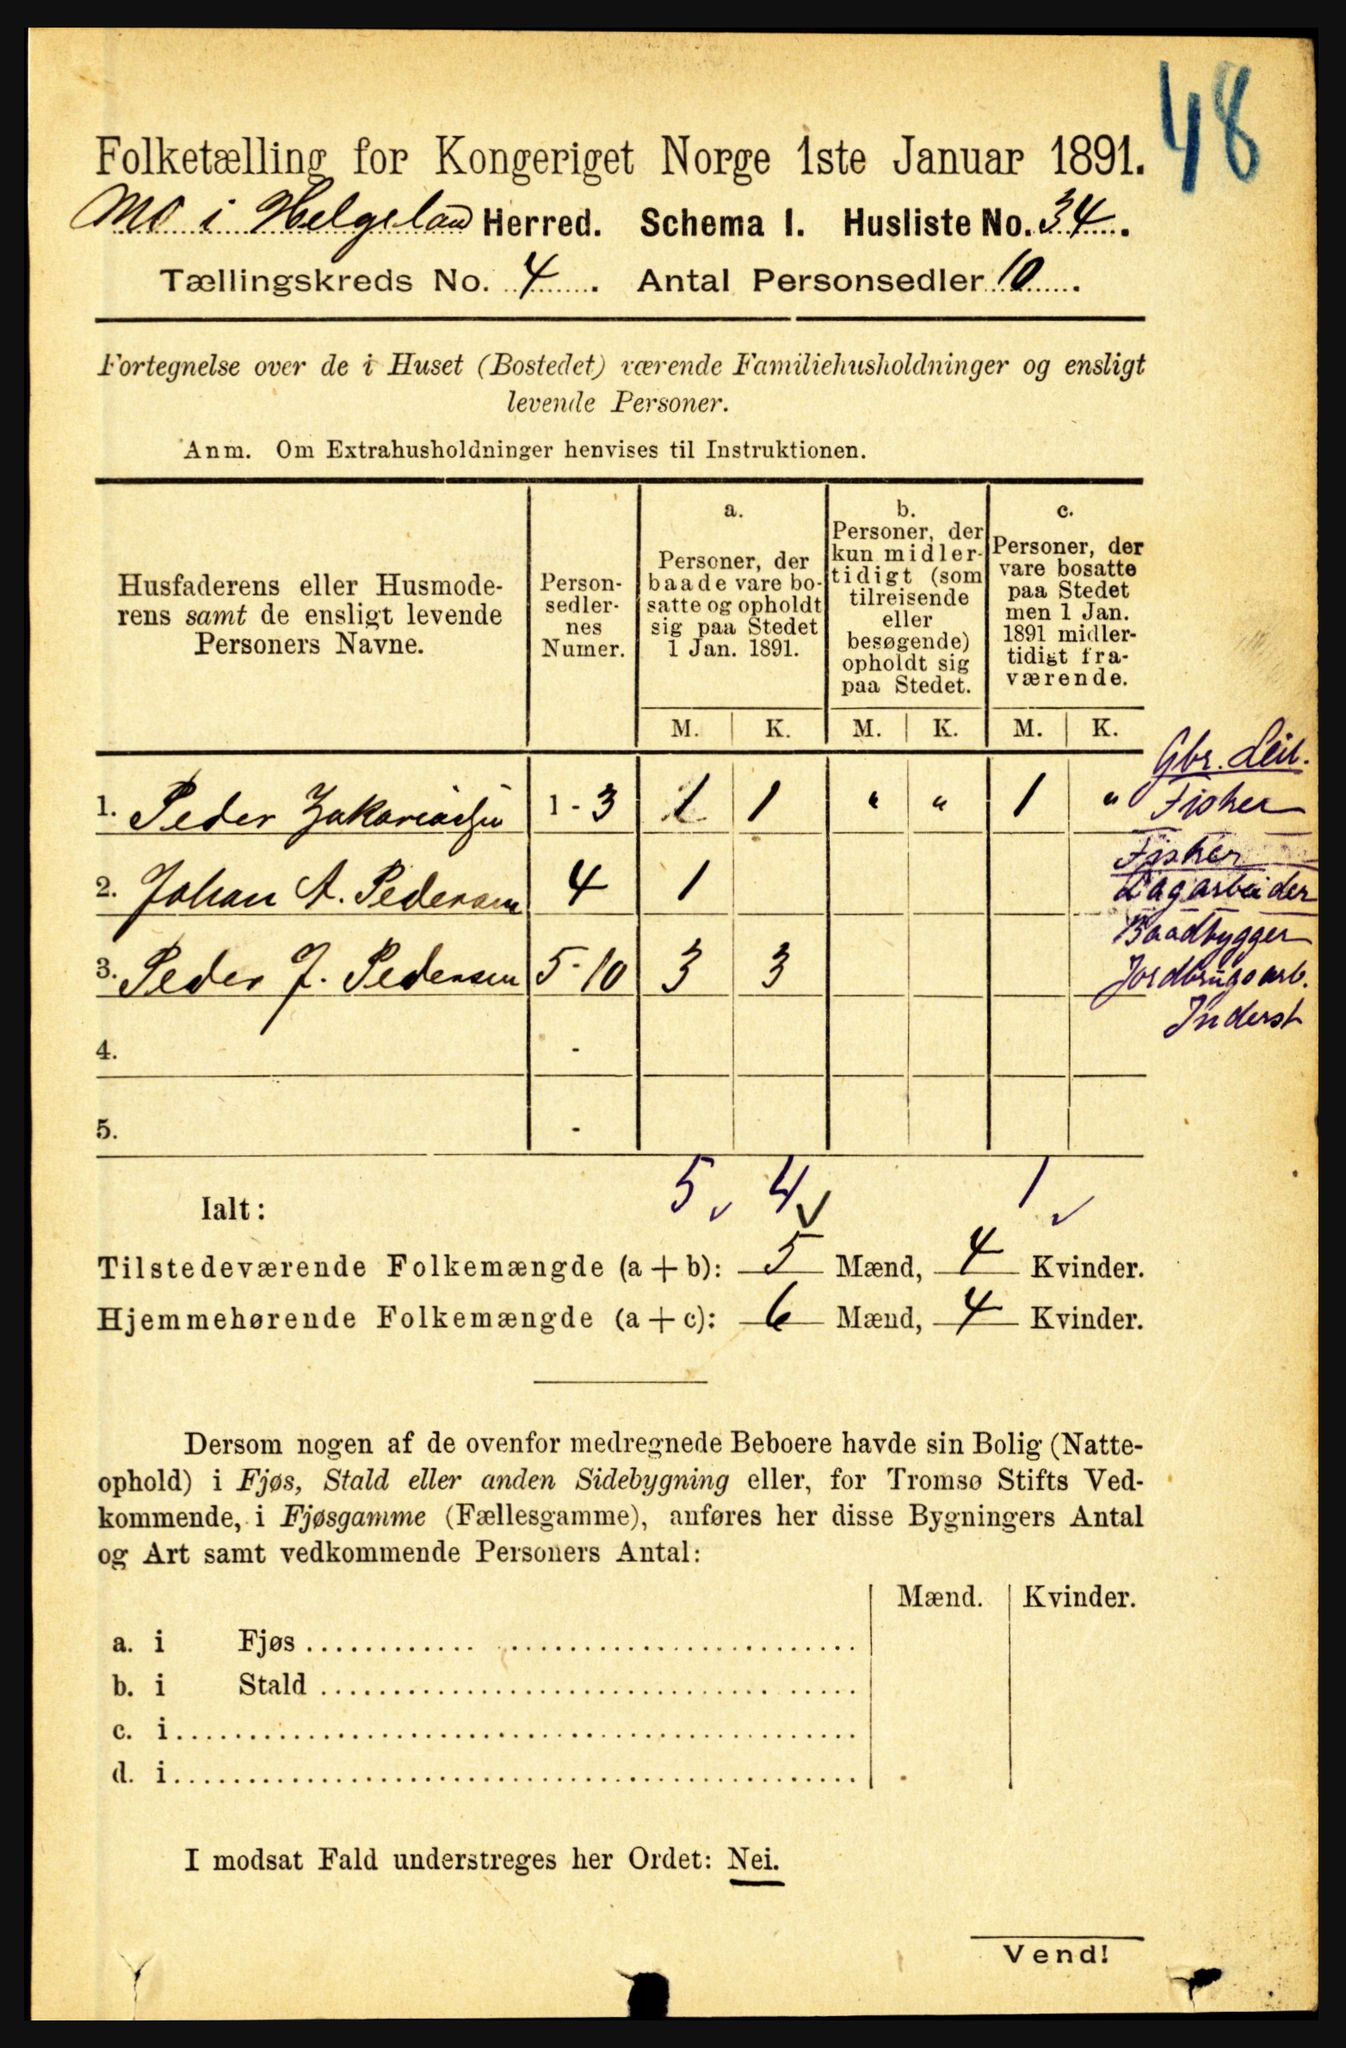 48
Folketælling for Kongeriget Norge 1ste Januar 1891.
Mo i Helgeland Herred. Schema I. Husliste No. 34.
Tællingskreds No. 4. Antal Personsedler 10.
Fortegnelse over de i Huset (Bostedet) værende Familiehusholdninger og ensligt
levende Personer.
Anm. Om Extrahusholdninger henvises til Instruktionen.
Husfaderens eller Husmode-
rens samt de ensligt levende
Personers Navne.
Person-
sedler-
nes
Numer.
a.
Personer, der
baade vare bo-
satte og opholdt
sig paa Stedet
1 Jan. 1891.
b.
Personer, der
kun midler-
tidigt (som
tilreisende
eller
besøgende)
opholdt sig
paa Stedet.
c.
Personer, der
vare bosatte
paa Stedet
men 1 Jan.
1891 midler-
tidigt fra-
værende.
M. K. M. K. M. K.
Gbr. Leil.
1. Peder Zakariasen 1 - 3 1 1 " " 1 " Fisker
Fisker
2. Johan A. Pedersen 4 1 Dagarbeider
Baadbygger
3. Peder J. Pedersen 5 - 10 3 3 Jordbrugsarb.
Inderst
4. -
5. -
Ialt: 5 4 1
Tilstedeværende Folkemængde (a + b): 5 Mænd, 4 Kvinder.
Hjemmehørende Folkemængde (a + c): 6 Mænd, 4 Kvinder.
Dersom nogen af de ovenfor medregnede Beboere havde sin Bolig (Natte-
ophold) i Fjøs, Stald eller anden Sidebygning eller, for Tromsø Stifts Ved-
kommende, i Fjøsgamme (Fællesgamme), anføres her disse Bygningers Antal
og Art samt vedkommende Personers Antal:
Mænd. Kvinder.
a. i Fjøs
b. i Stald
c. i
d. i
I modsat Fald understreges her Ordet: Nei.
Vend!